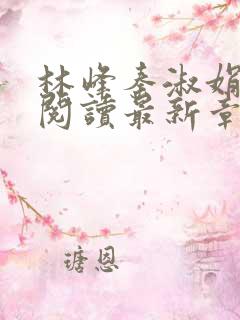 林峰秦淑娟
閱讀最新章
瑭恩